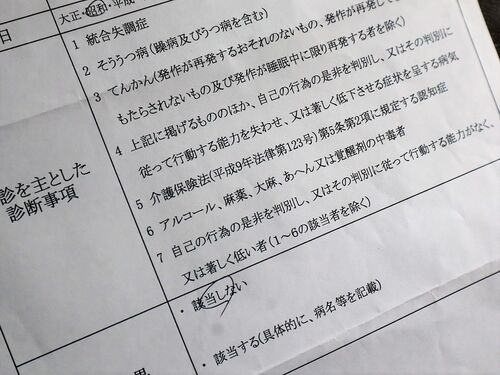 大正・昭和・平成
日
診を主とした
診断事項
1 統合失調症
2 そううつ病(躁病及びうつ病を含む)
3 てんかん(発作が再発するおそれのないもの、発作が再発して
もたらされないもの及び発作が睡眠中に限り再発する者を除く)
4 上記に掲げるもののほか、自己の行為の是非を判別し、又はその判別に
従って行動する能力を失わせ、又は著しく低下させる症状を呈する病気
5 介護保険法(平成9年法律第123号)第5条第2項に規定する認知症
6 アルコール、麻薬、大麻、あへん又は覚醒剤の中毒者
7 自己の行為の是非を判別し、又はその判別に従って行動する能力がなく、
又は著しく低い者(1～6の該当者を除く)
・該当しない
・該当する(具体的に、病名等を記載)